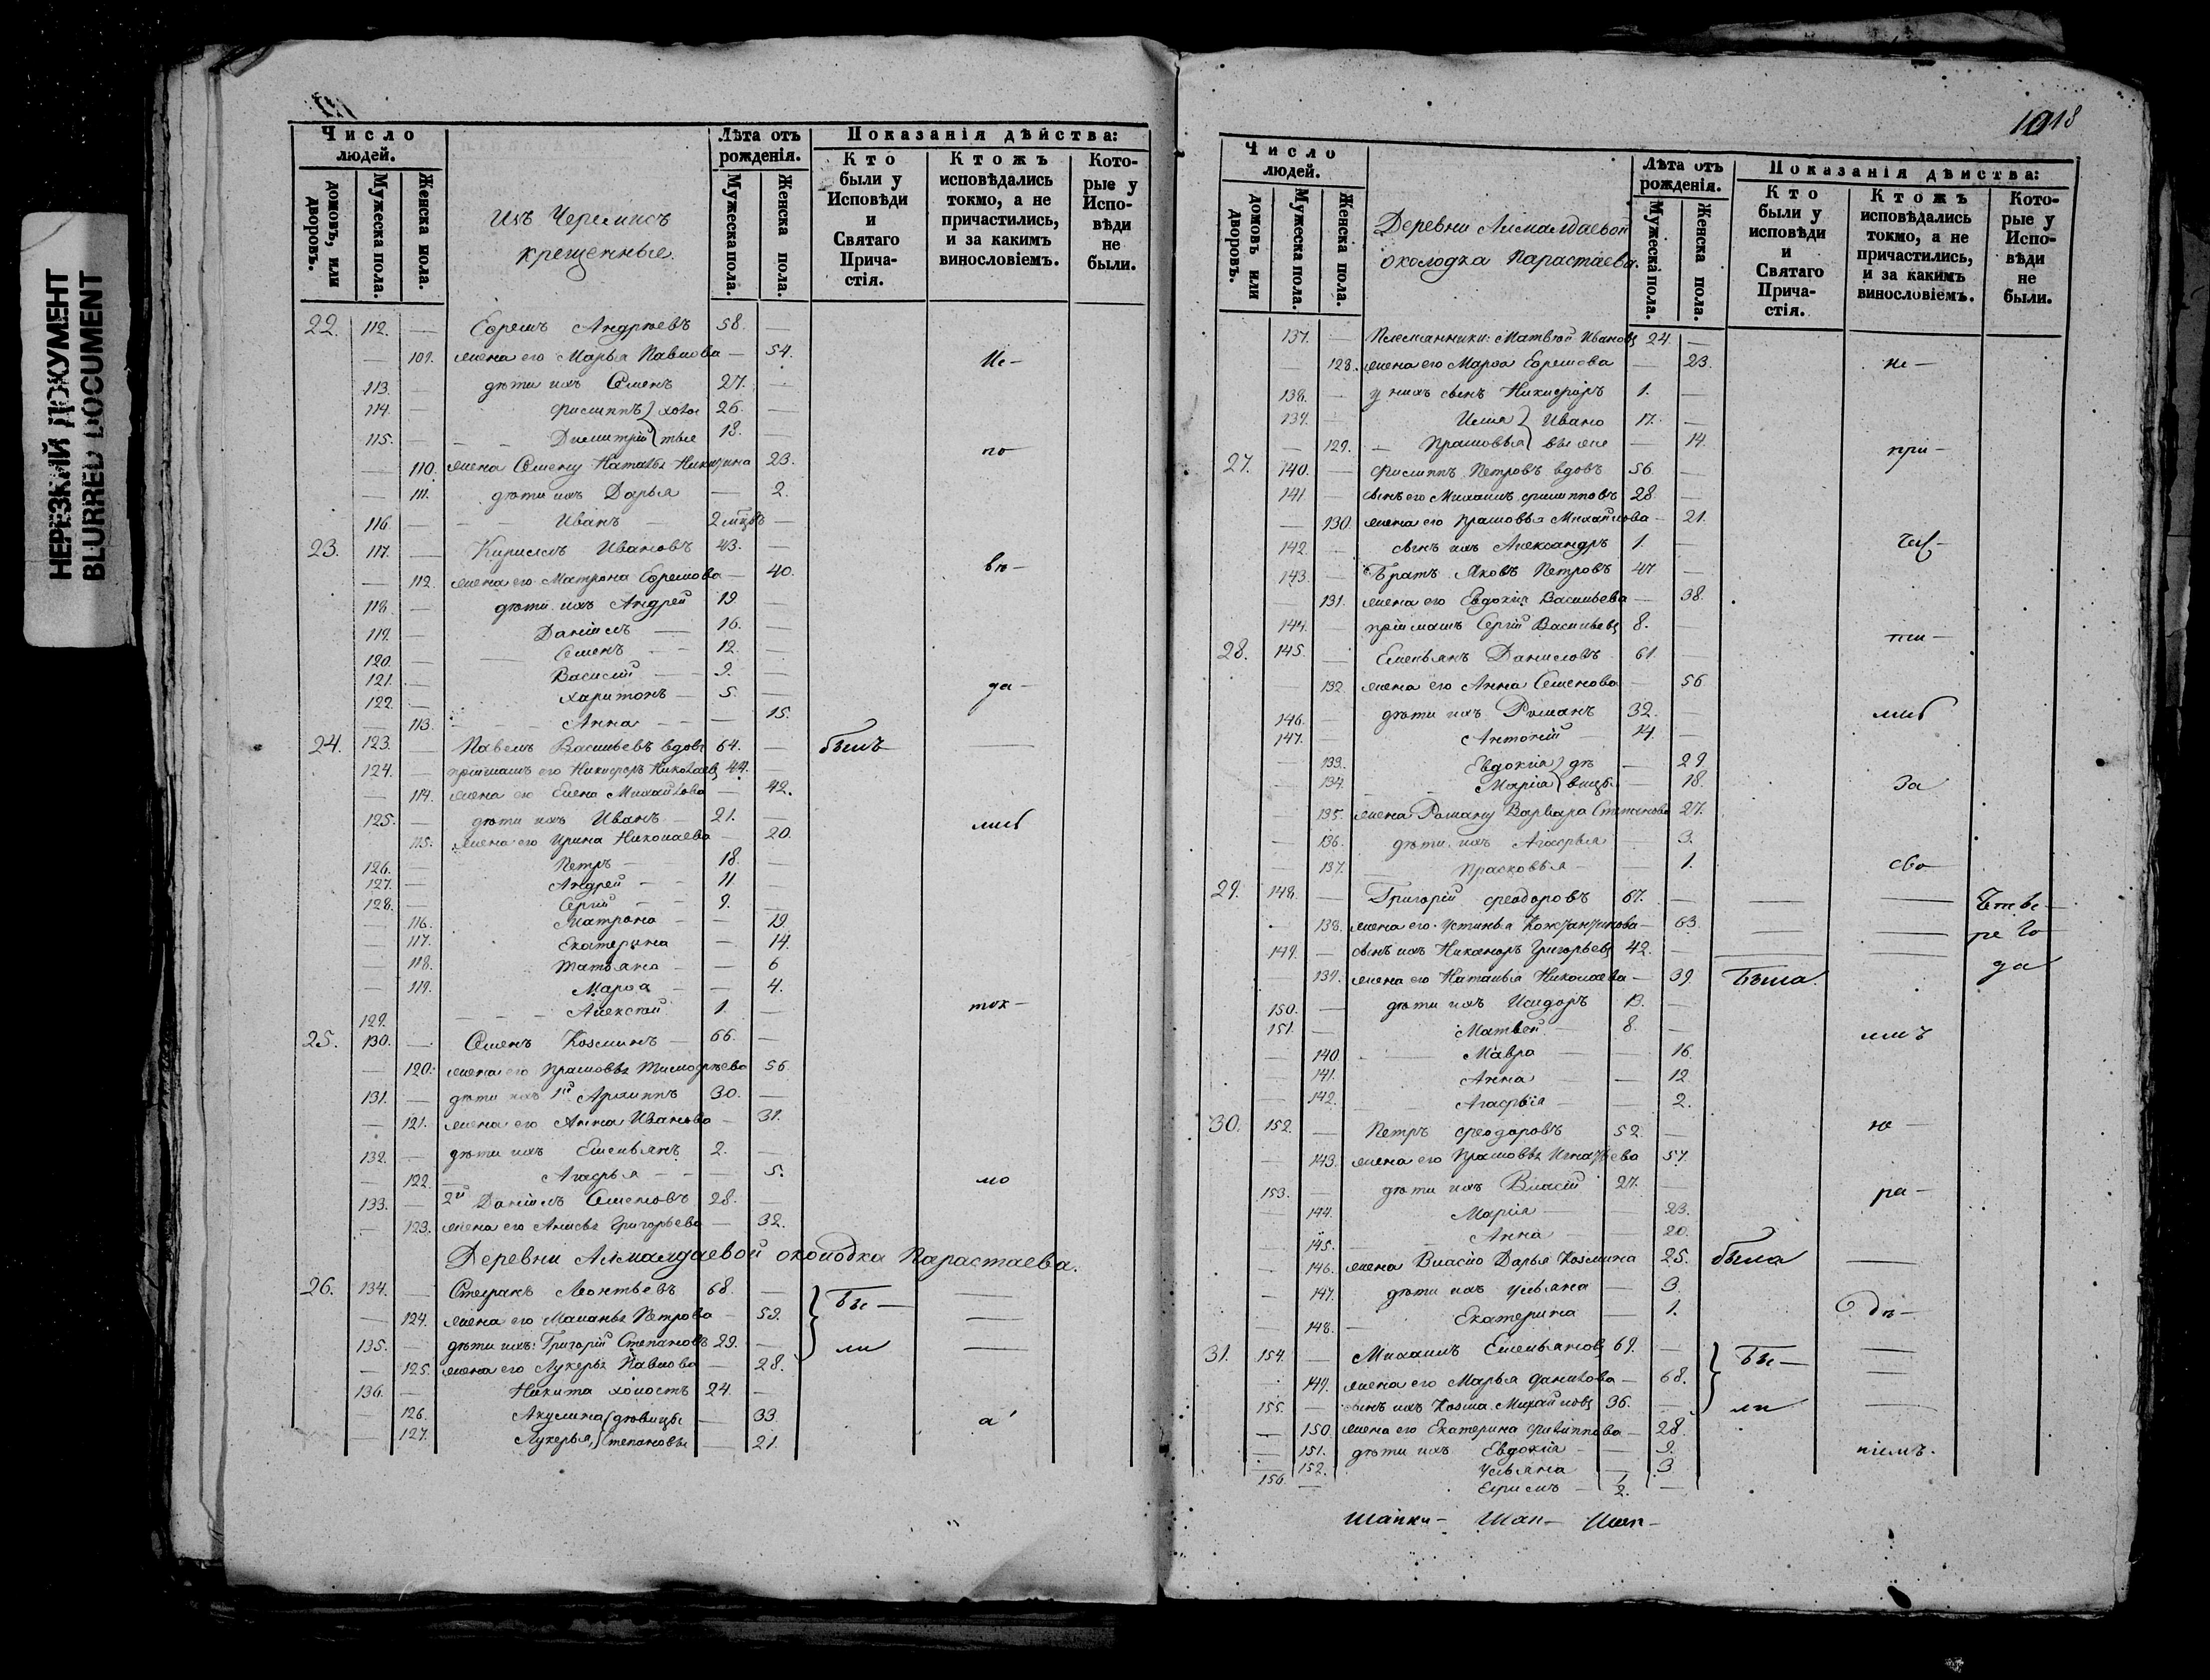 НЕРЕЗКИЙ ДОКУМЕНТ
BLURRED DOCUMENT
Число людей.
домовъ, или дворовъ.
Мужеска пола.
Женска пола.
Изъ Черемисъ
крещенные.
Лѣта отъ рожденія.
Мужеска пола.
Женска пола.
Показанія дѣйства:
Кто были у Исповѣди и Святаго Прича-стія.
Ктожъ исповѣдались токмо, а не причастились, и за какимъ винословіемъ.
Кото-рые у Испо-вѣди не были.
22. 112. — Ефремъ Андреевъ 58. —
— 109. жена его Марья Павлова — 54. Ис-
113. — дѣти ихъ Семенъ 27. —
114. — Филиппъ } холос 26. —
115. — Димитрій } тые 18. —
— 110. жена Семену Наталья Никитина 23. по
— 111. дѣти ихъ Дарья — 2.
116. — Иванъ 2 мцвъ —
23. 117. — Кириллъ Ивановъ 43. —
— 112. жена его Матрона Ефремова — 40. вѣ-
118. — дѣти ихъ Андрей 19 —
119. — Даніилъ — 16. —
120. — Семенъ — 12. —
121. — Василій — 9. —
122. — Харитонъ — 5. — да-
— 113. Анна — 15.
24. 123. — Павелъ Васильевъ вдовъ 64. — былъ —
124. — пріймашъ его Никифоръ Николаевъ 44. —
— 114. жена его Елена Михайлова — 42.
125. — дѣти ихъ Иванъ — 21. — лись
— 115. жена его Ирина Николаева — 20.
126. — Петръ — 18. —
127. — Андрей — 11 —
128. — Сергій — 9. —
— 116. Матрона — 19.
— 117. Екатерина — 14.
— 118. Татьяна — 6
— 119. Марѳа — 4.
129. Алексѣй 1. — ток-
25. 130. — Семенъ Козминъ — 66. —
— 120. жена его Прасковья Тимофѣева 56.
131. — дѣти ихъ 1й Архиппъ 30. —
— 121. жена его Анна Иванова — 31.
132. — дѣти ихъ Емельянъ 2. —
— 122. Агафья — 5.
133. — 2й Даніилъ Семеновъ 28. — мо
— 123. жена его Анисья Григорьева — 32.
Деревни Алмалдаевой околодка Парастаева.
26. 134. — Стефанъ Леонтьевъ 68. — } Бы- —
— 124. жена его Маланья Петрова — 52. —
135. — дѣти ихъ: Григорій Степановъ 29. — ли —
— 125. жена его Лукерья Павлова — 28.
136. — Никита холостъ 24. —
— 126. Акулина } дѣвицы — 33. а
— 127. Лукерья } Степановы — 21.
1018
Число людей.
домовъ или дворовъ.
Мужеска пола.
Женска пола.
Деревни Алмалдаевой
околодка Парастаева.
Лѣта отъ рожденія.
Мужеска пола.
Женска пола.
Показанія дѣйства:
Кто были у исповѣди и Святаго Прича-стія.
Ктожъ исповѣдались токмо, а не причастились, и за какимъ винословіемъ.
Кото-рые у Испо-вѣди не были.
137. — Племянники: Матвѣй Ивановъ 24. —
— 128. жена его Марѳа Ефремова — 23. не-
138. — у нихъ сынъ Никифоръ 1. —
139. — Илья } Ивано 17. —
— 129. Прасковья } вы — 14. при-
27. 140. — Филиппъ Петровъ вдовъ 56 —
141. — сынъ его Михаилъ Филипповъ 28. —
— 130. жена его Прасковья Михайлова — 21.
142. — сынъ ихъ Александръ 1. —
143. — Братъ Яковъ Петровъ 47 —
— 131. жена его Евдокія Васильева — 38.
144. — пріймашъ Сергій Васильевъ 8. —
28. 145. — Емельянъ Даниловъ 61. — ти-
— 132. жена его Анна Семенова — 56
146. — дѣти ихъ Романъ 32. — лись
147. — Антоній — 14. —
133. Евдокія } дѣ — 29
134. Марія } вицы — 18. За
— 135. жена Роману Варвара Степанова 27.
— 136. дѣти ихъ Агафья — 3.
— 137. Прасковья — 1. сво-
29. 148. — Григорій Ѳеодоровъ 67. — — —
138. жена его Устинья — 63. — —
149. — сынъ ихъ Никаноръ Григорьевъ 42. — — — да
139. жена его Наталья Николаева — 39. Была.
150. — дѣти ихъ Исидоръ 13. —
151. — Матвей — 8. —
— 140. Мавра — 16.
— 141. Анна — 12
— 142. Агафья — 2.
30. 152. — Петръ Ѳеодоровъ 52. — не —
— 143. жена его Прасковья Игнатьева 57.
153. — дѣти ихъ Власій 27. — ра-
— 144. Марія — 23.
— 145. Анна — 20.
— 146. жена Власію Дарья Козмина 25. была —
— 147. дѣти ихъ Ульяна — 3.
— 148. Екатерина — 1.
31. 154. — Михаилъ Емельяновъ 69. — } Бы- —
149. жена его Марья Данилова — 68. —
155. — сынъ ихъ Козма Михайловъ 36. — ли —
— 150. жена его Екатерина Филиппова — 28.
— 151. дѣти ихъ Евдокія — 9. ніемъ.
— 152. Ульяна — 3
156. — —